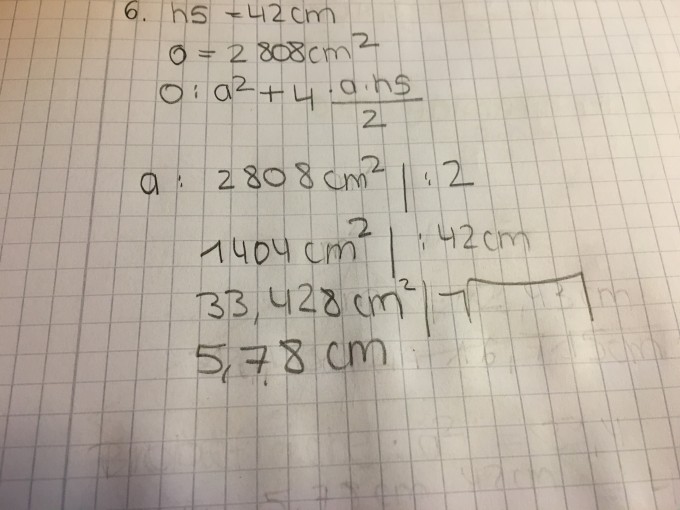 6. hs = 42cm
O = 2808cm²
O: a² + 4 · a·hs / 2
a: 2808cm² | :2
1404 cm² | :42cm
33,428 cm² | √
5,78 cm